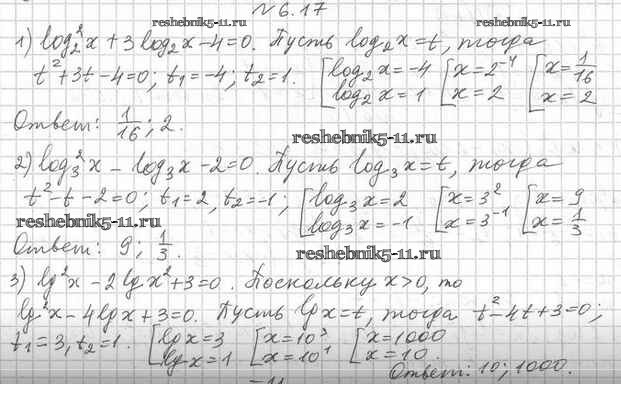 №6.17
reshebnik5-11.ru reshebnik5-11.ru
1) log₂²x + 3log₂x - 4 = 0. Пусть log₂x = t, тогда
t² + 3t - 4 = 0; t₁ = -4; t₂ = 1. [log₂x = -4 [x = 2⁻⁴ [x = 1/16
log₂x = 1 x = 2 x = 2
Ответ: 1/16; 2.
reshebnik5-11.ru
2) log₃²x - log₃x - 2 = 0. Пусть log₃x = t, тогда
t² - t - 2 = 0; t₁ = 2, t₂ = -1; [log₃x = 2 [x = 3² [x = 9
log₃x = -1 x = 3⁻¹ x = 1/3
reshebnik5-11.ru
Ответ: 9; 1/3.
reshebnik5-11.ru
3) lg²x - 2lgx² + 3 = 0. Поскольку x > 0, то
lg²x - 4lgx + 3 = 0. Пусть lgx = t, тогда t² - 4t + 3 = 0;
t₁ = 3, t₂ = 1. [lgx = 3 [x = 10³ [x = 1000
lgx = 1 x = 10¹ x = 10.
Ответ: 10; 1000.